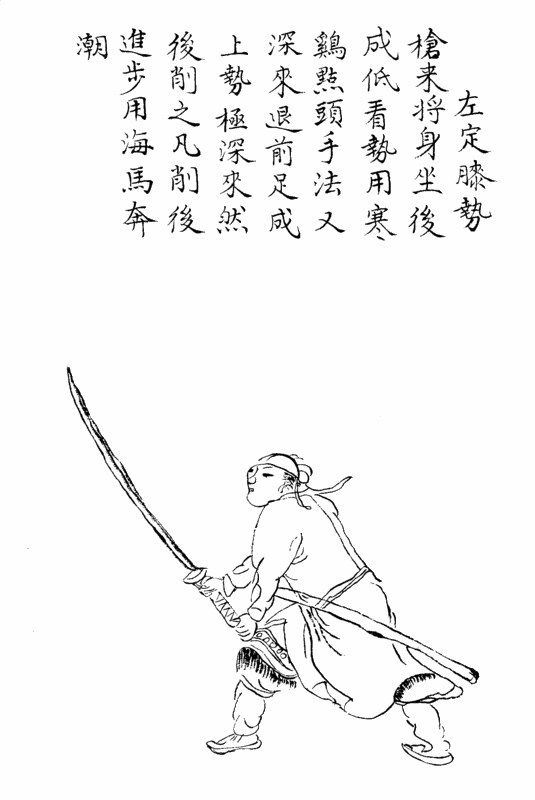 左定膝勢
槍来將身坐後
成低看勢用寒
鷄㸃頭手法又
深來退前足成
上勢極深來然
後削之凡削後
進步用海馬奔
潮